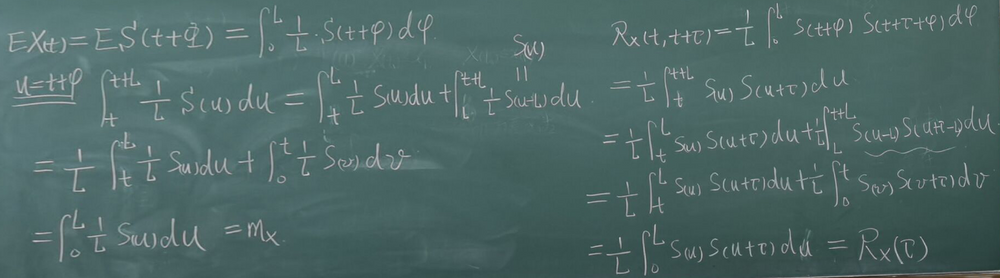 EX(t) = ES(t+Φ) = ∫_0^L 1/L · S(t+φ)dφ.
u=t+φ ∫_t^{t+L} 1/L S(u)du = ∫_t^L 1/L S(u)du + ∫_L^{t+L} 1/L S(u-L)du.
S(u)
||
= 1/L ∫_t^L 1/L S(u)du + ∫_0^t 1/L S(v)dv
= ∫_0^L 1/L S(u)du = m_X.
R_X(t, t+τ) = 1/L ∫_0^L S(t+φ) S(t+τ+φ)dφ
= 1/L ∫_t^{t+L} S(u) S(u+τ)du
= 1/L ∫_t^L S(u) S(u+τ)du + 1/L ∫_L^{t+L} S(u-L) S(u+τ-L)du
= 1/L ∫_t^L S(u) S(u+τ)du + 1/L ∫_0^t S(v) S(v+τ)dv
= 1/L ∫_0^L S(u) S(u+τ)du = R_X(τ)